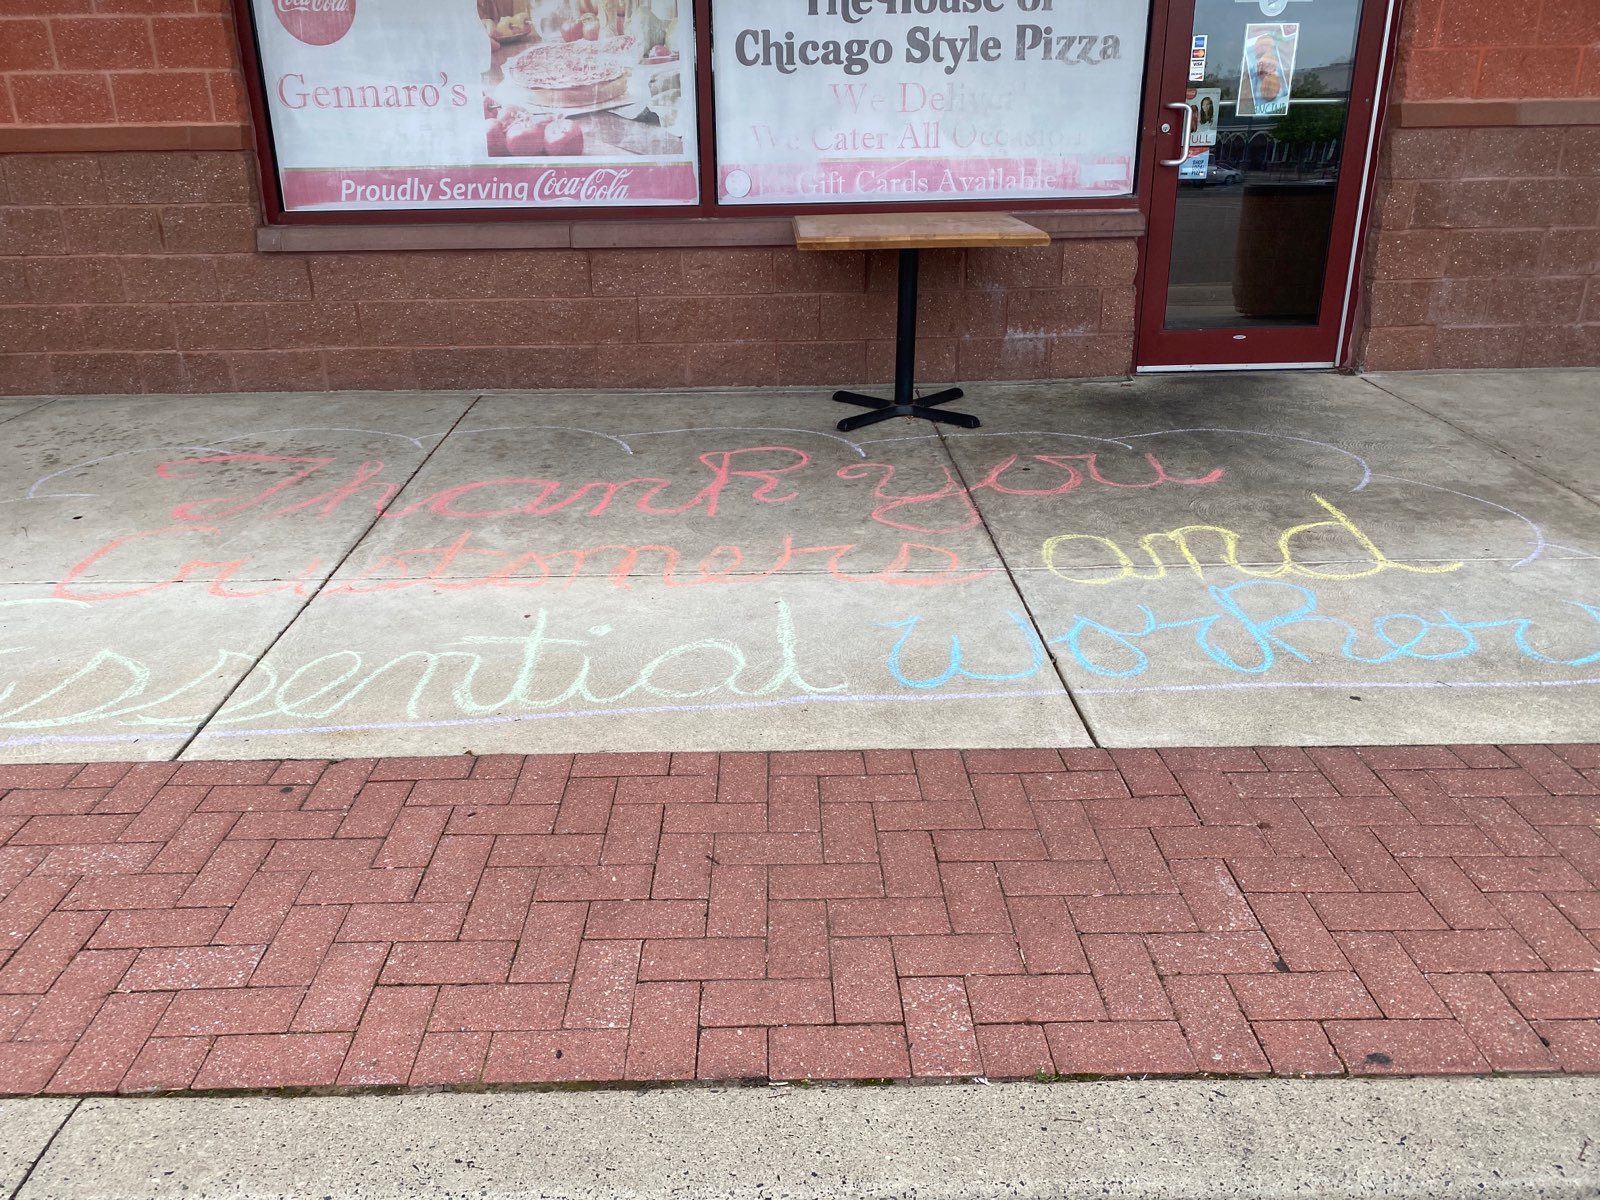 Coca-Cola
Gennaro's
Proudly Serving Coca-Cola
The House of
Chicago Style Pizza
We Deliver
We Cater All Occasion
Gift Cards Available
VISA
PULL
Thank you
Customers and
Essential Worker